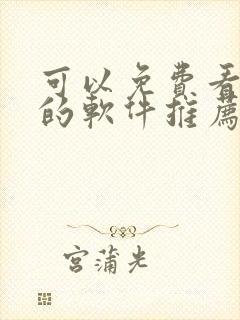 可以免費看
的軟件推薦
宮蒲光